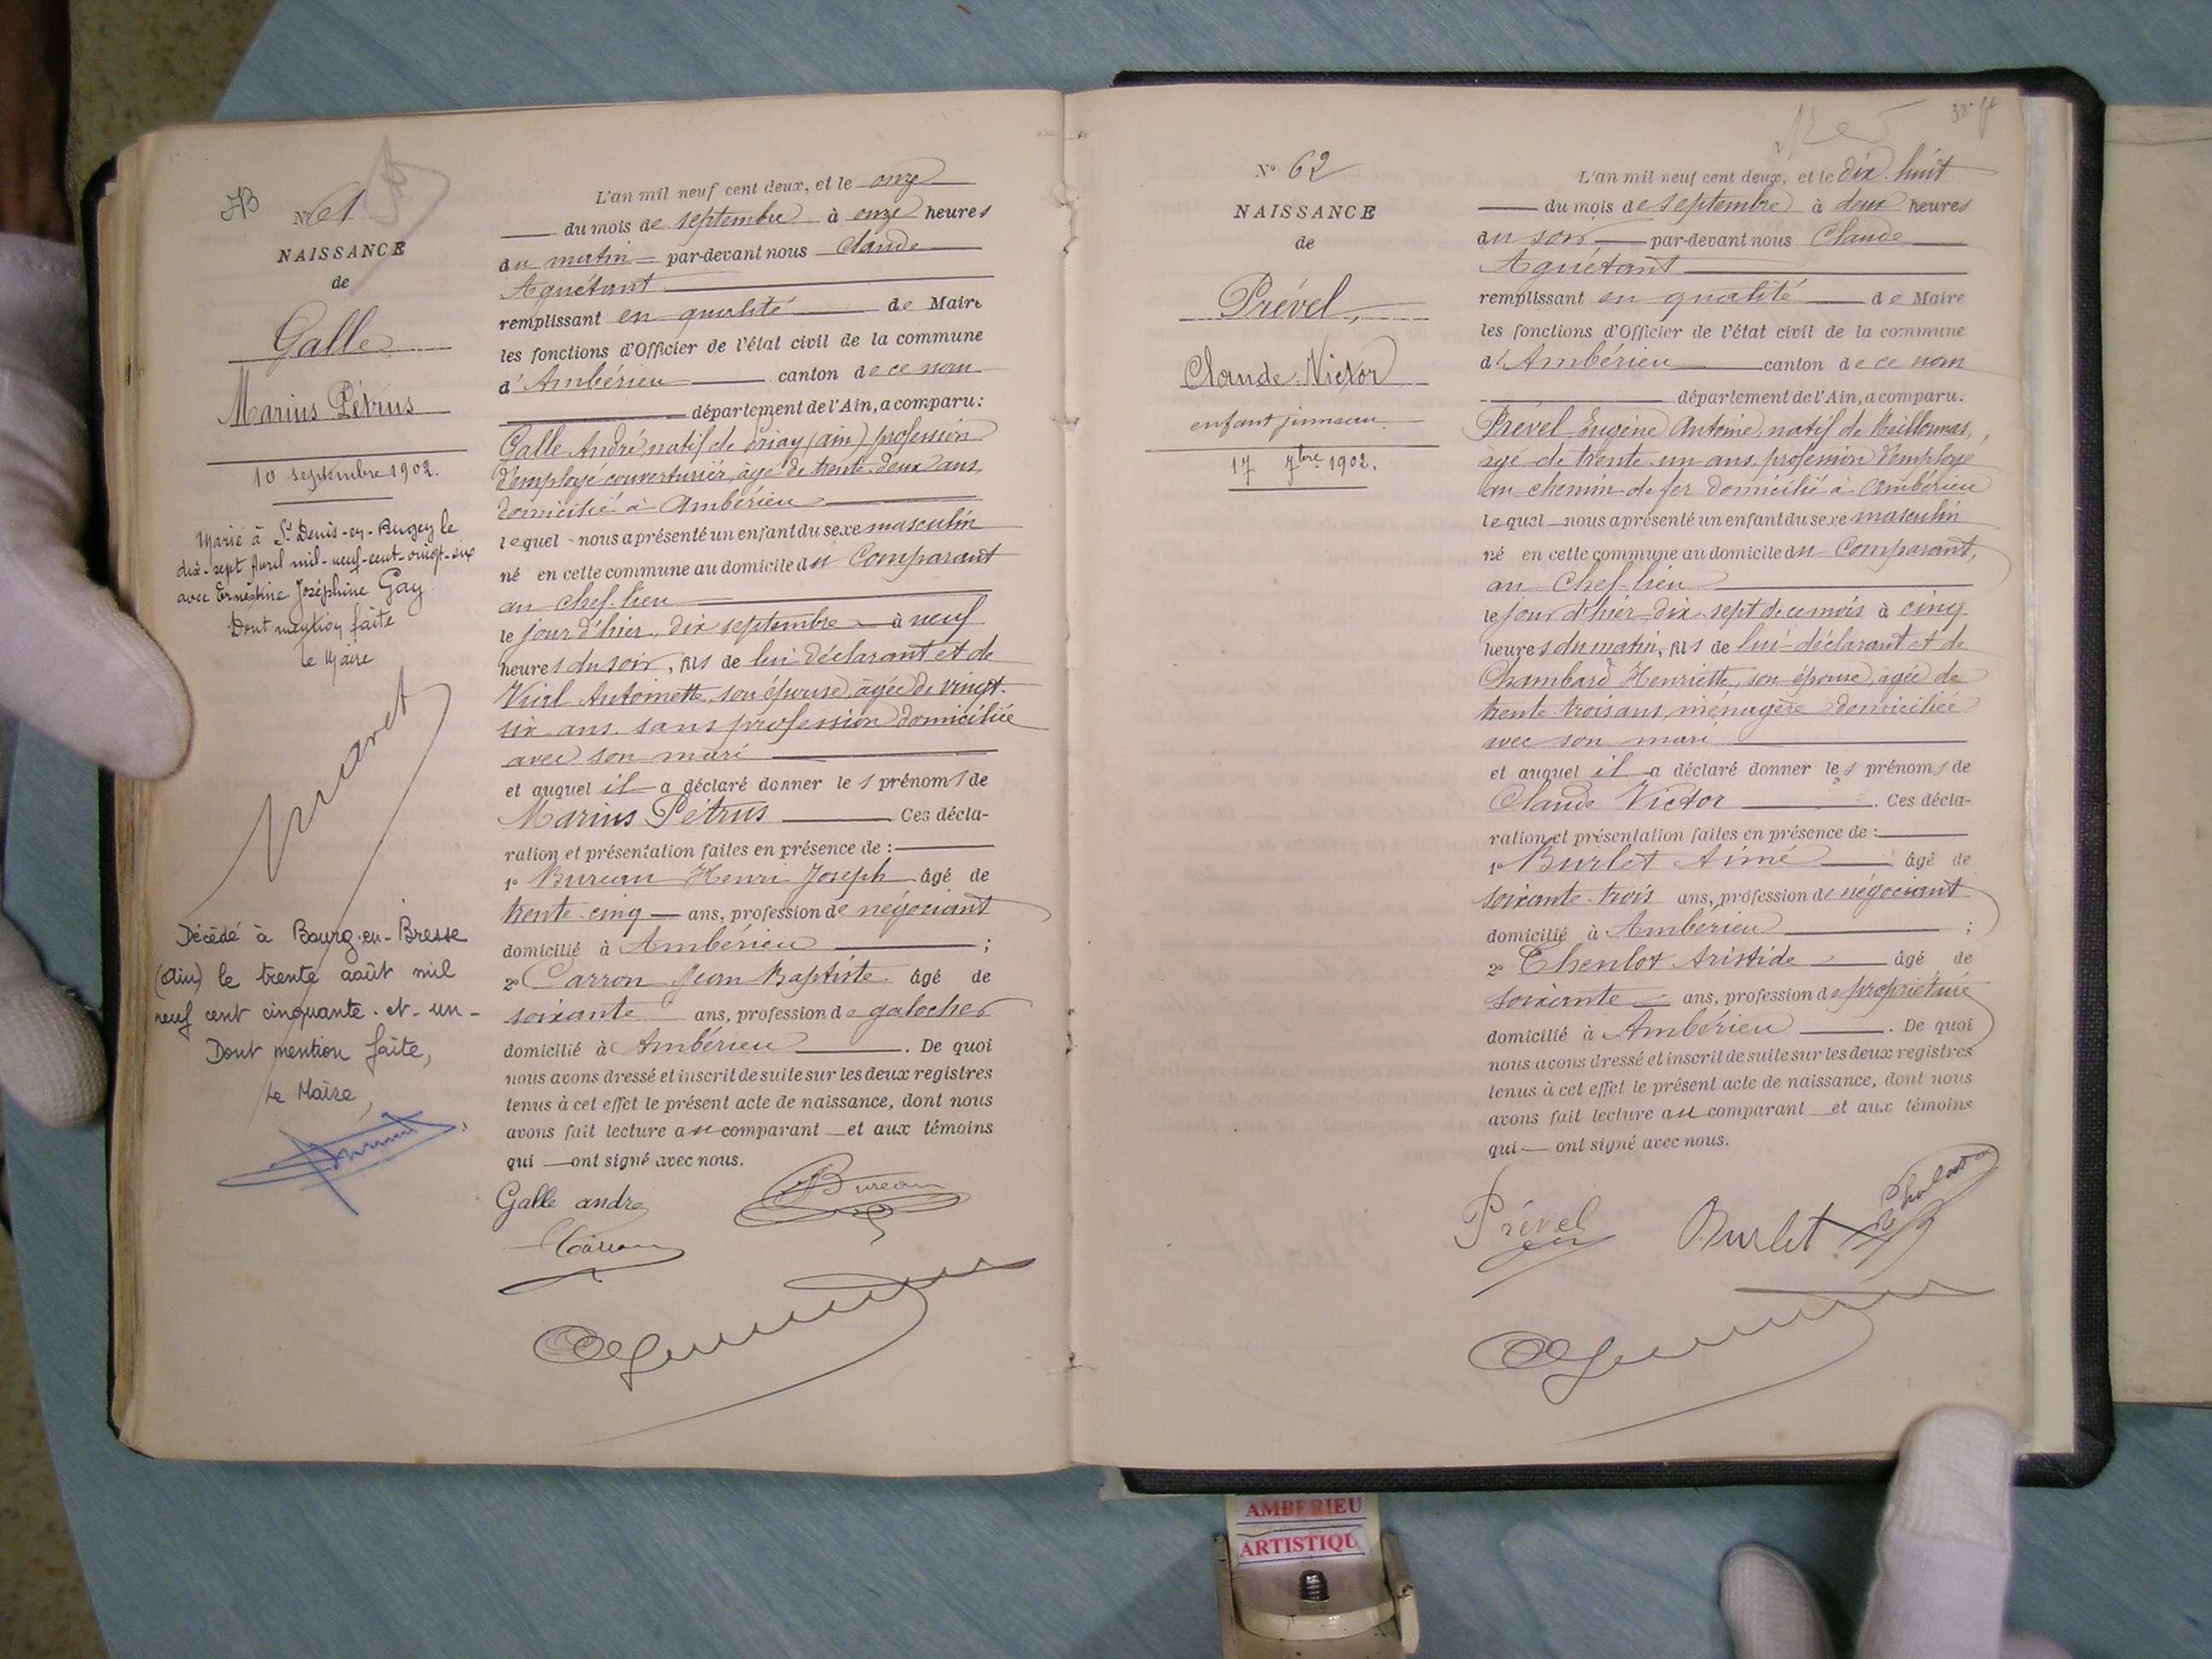 N° 61
NAISSANCE
de
Galle
Marius Pétrus
10 septembre 1902.
Marié à St Denis-en-Bugey le
dix-sept Avril mil-neuf-cent-vingt-six
avec Ernestine Joséphine Gay.
Dont mention faite
le Maire
Décédé à Bourg-en-Bresse
(Ain) le trente août mil
neuf cent cinquante-et-un-
Dont mention faite,
Le Maire,
L'an mil neuf cent deux, et le onze
du mois de septembre à onze heures
du matin par-devant nous Claude
Aguétant
remplissant en qualité de Maire
les fonctions d'Officier de l'état civil de la commune
d'Ambérieu canton de ce nom
département de l'Ain, a comparu:
Galle André, natif de Priay (ain) profession
d'employé couverturier, âgé de trente-deux ans,
domicilié à Ambérieu
lequel nous a présenté un enfant du sexe masculin
né en cette commune au domicile du Comparant
au chef-lieu
le jour d'hier, dix septembre à neuf
heures du soir, fils de lui déclarant et de
Antoinette, son épouse, âgée de vingt-
six ans, sans profession domiciliée
avec son mari
et auquel il a déclaré donner les prénoms de
Marius Pétrus Ces décla-
ration et présentation faites en présence de :
1° Bureau Henri Joseph âgé de
trente-cinq ans, profession de négociant
domicilié à Ambérieu ;
2° Carron Jean Baptiste âgé de
soixante ans, profession de galocher
domicilié à Ambérieu . De quoi
nous avons dressé et inscrit de suite sur les deux registres
tenus à cet effet le présent acte de naissance, dont nous
avons fait lecture au comparant et aux témoins
qui ont signé avec nous.
Galle andre
Bureau
Carron
N° 62
NAISSANCE
de
Prével,
Claude Victor
enfant jumeau.
17 7bre 1902.
L'an mil neuf cent deux, et le dix-huit
du mois de septembre à deux heures
du soir par-devant nous Claude
Aguétant
remplissant en qualité de Maire
les fonctions d'Officier de l'état civil de la commune
d'Ambérieu canton de ce nom
département de l'Ain, a comparu.
Prével Eugène Antoine, natif de Meillonnas,
âgé de trente-un ans, profession d'employé
au chemin de fer domicilié à Ambérieu
lequel nous a présenté un enfant du sexe masculin
né en cette commune au domicile du Comparant,
au Chef-lieu
le jour d'hier, dix-sept de ce mois à cinq
heures du matin, fils de lui déclarant et de
Chambard Henriette, son épouse, âgée de
trente-trois ans, ménagère domiciliée
avec son mari
et auquel il a déclaré donner les prénoms de
Claude Victor . Ces décla-
ration et présentation faites en présence de :
1° Burlet Aimé âgé de
soixante-trois ans, profession de négociant
domicilié à Ambérieu ;
2° Chenlot Aristide âgé de
soixante ans, profession de propriétaire
domicilié à Ambérieu . De quoi
nous avons dressé et inscrit de suite sur les deux registres
tenus à cet effet le présent acte de naissance, dont nous
avons fait lecture au comparant et aux témoins
qui ont signé avec nous.
Prével
Burlet
AMBERIEU
ARTISTIQU